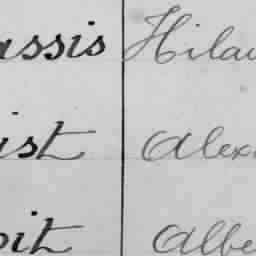 assis Hilai
ist Alex
oit Albe